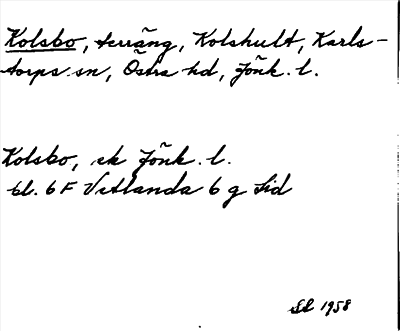 Kolsbo, terräng, Kolshult, Karls-
torps sn, Östra hd, Jönk. l.
Kolsbo, ek Jönk. l.
bl. 6 F Vetlanda 6 g Sid
SL 1958